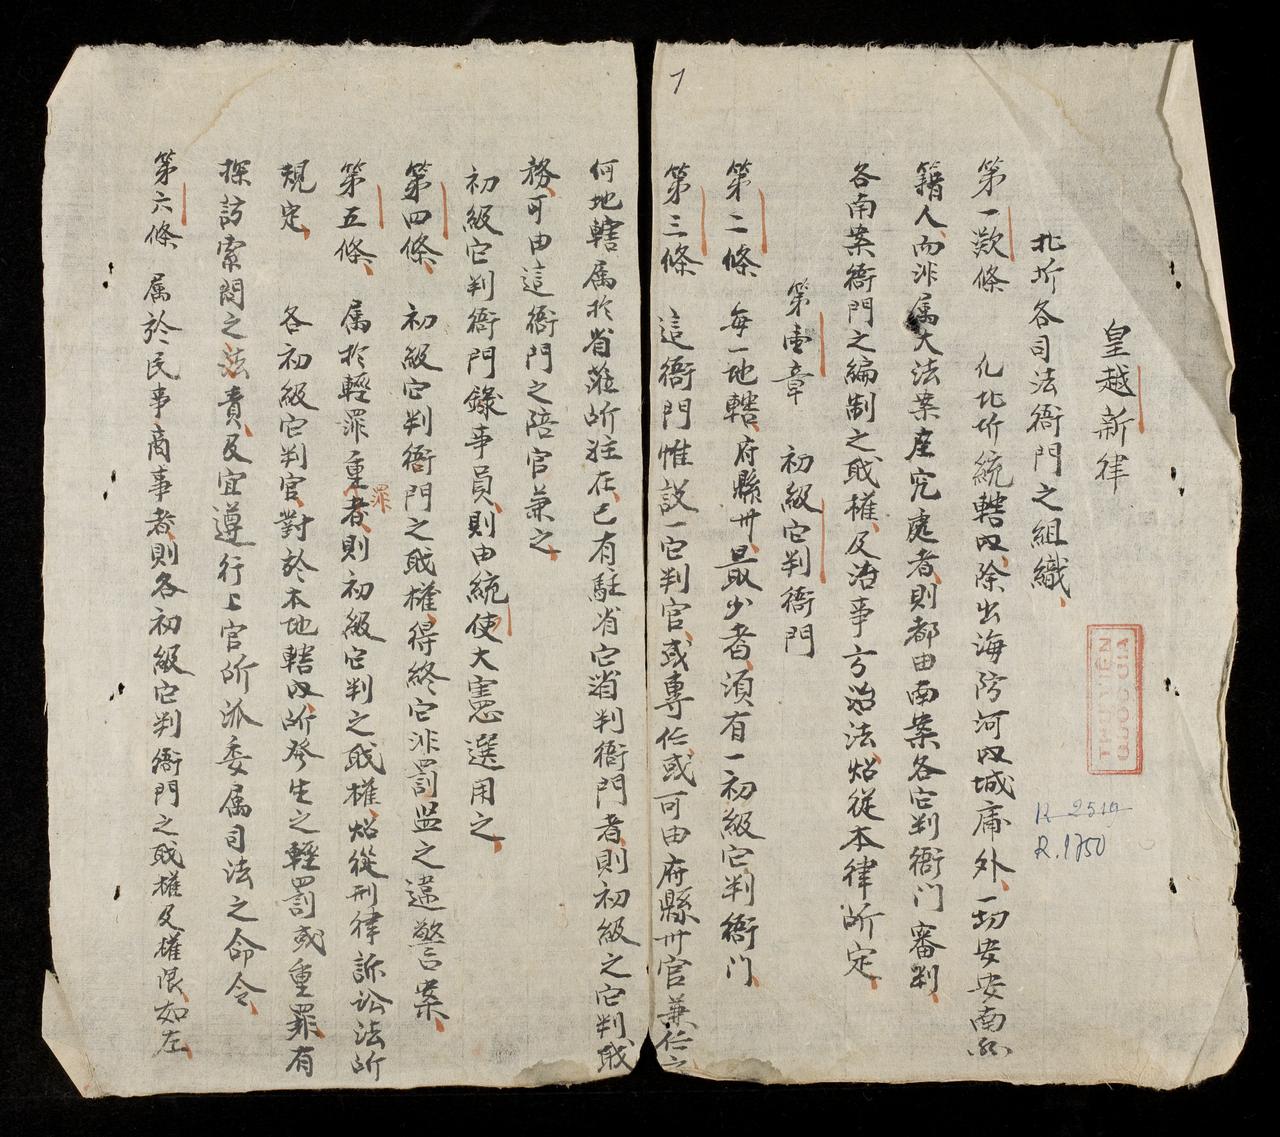 皇越新律
北圻各司法衙門之組織、
第一欵條 凡北圻統轄内、除出海防河内城庯外、一切安安南
籍人、而非属大法案座究處者、則都由南案各它判衙门審判、
各南案衙門之編制之职權、及治事方治法、炤從本律所定、
第壹章 初級它判衙門
第二條 每一地轄、府縣卅最少者、須有一初級它判衙门、
第三條 這衙門惟設一它判官、或専仁或可由府縣卅官兼仁之
何地轄属於省莅所駐在、已有駐省它消判衙門者、則初級之它判职
務、可由這衙門之陪官兼之、
初級它判衙門錄事員、則由統使大憲選用之、
第四條、 初級它判衙門之职權、得終它非罰盅之違警案、
第五條、 属於輕罪重罪者、則初級它判之职權、炤從刑律訴訟法所
規定、 各初級它判官、對於本地轄内、所發生之輕罰或重罪、有
探訪索問之法責、及宜遵行上官所派委属司法之命令、
第六條 属於民事商事者、則各初級它判衙門之职權及權限、如左、
7
R 2519
R.1750